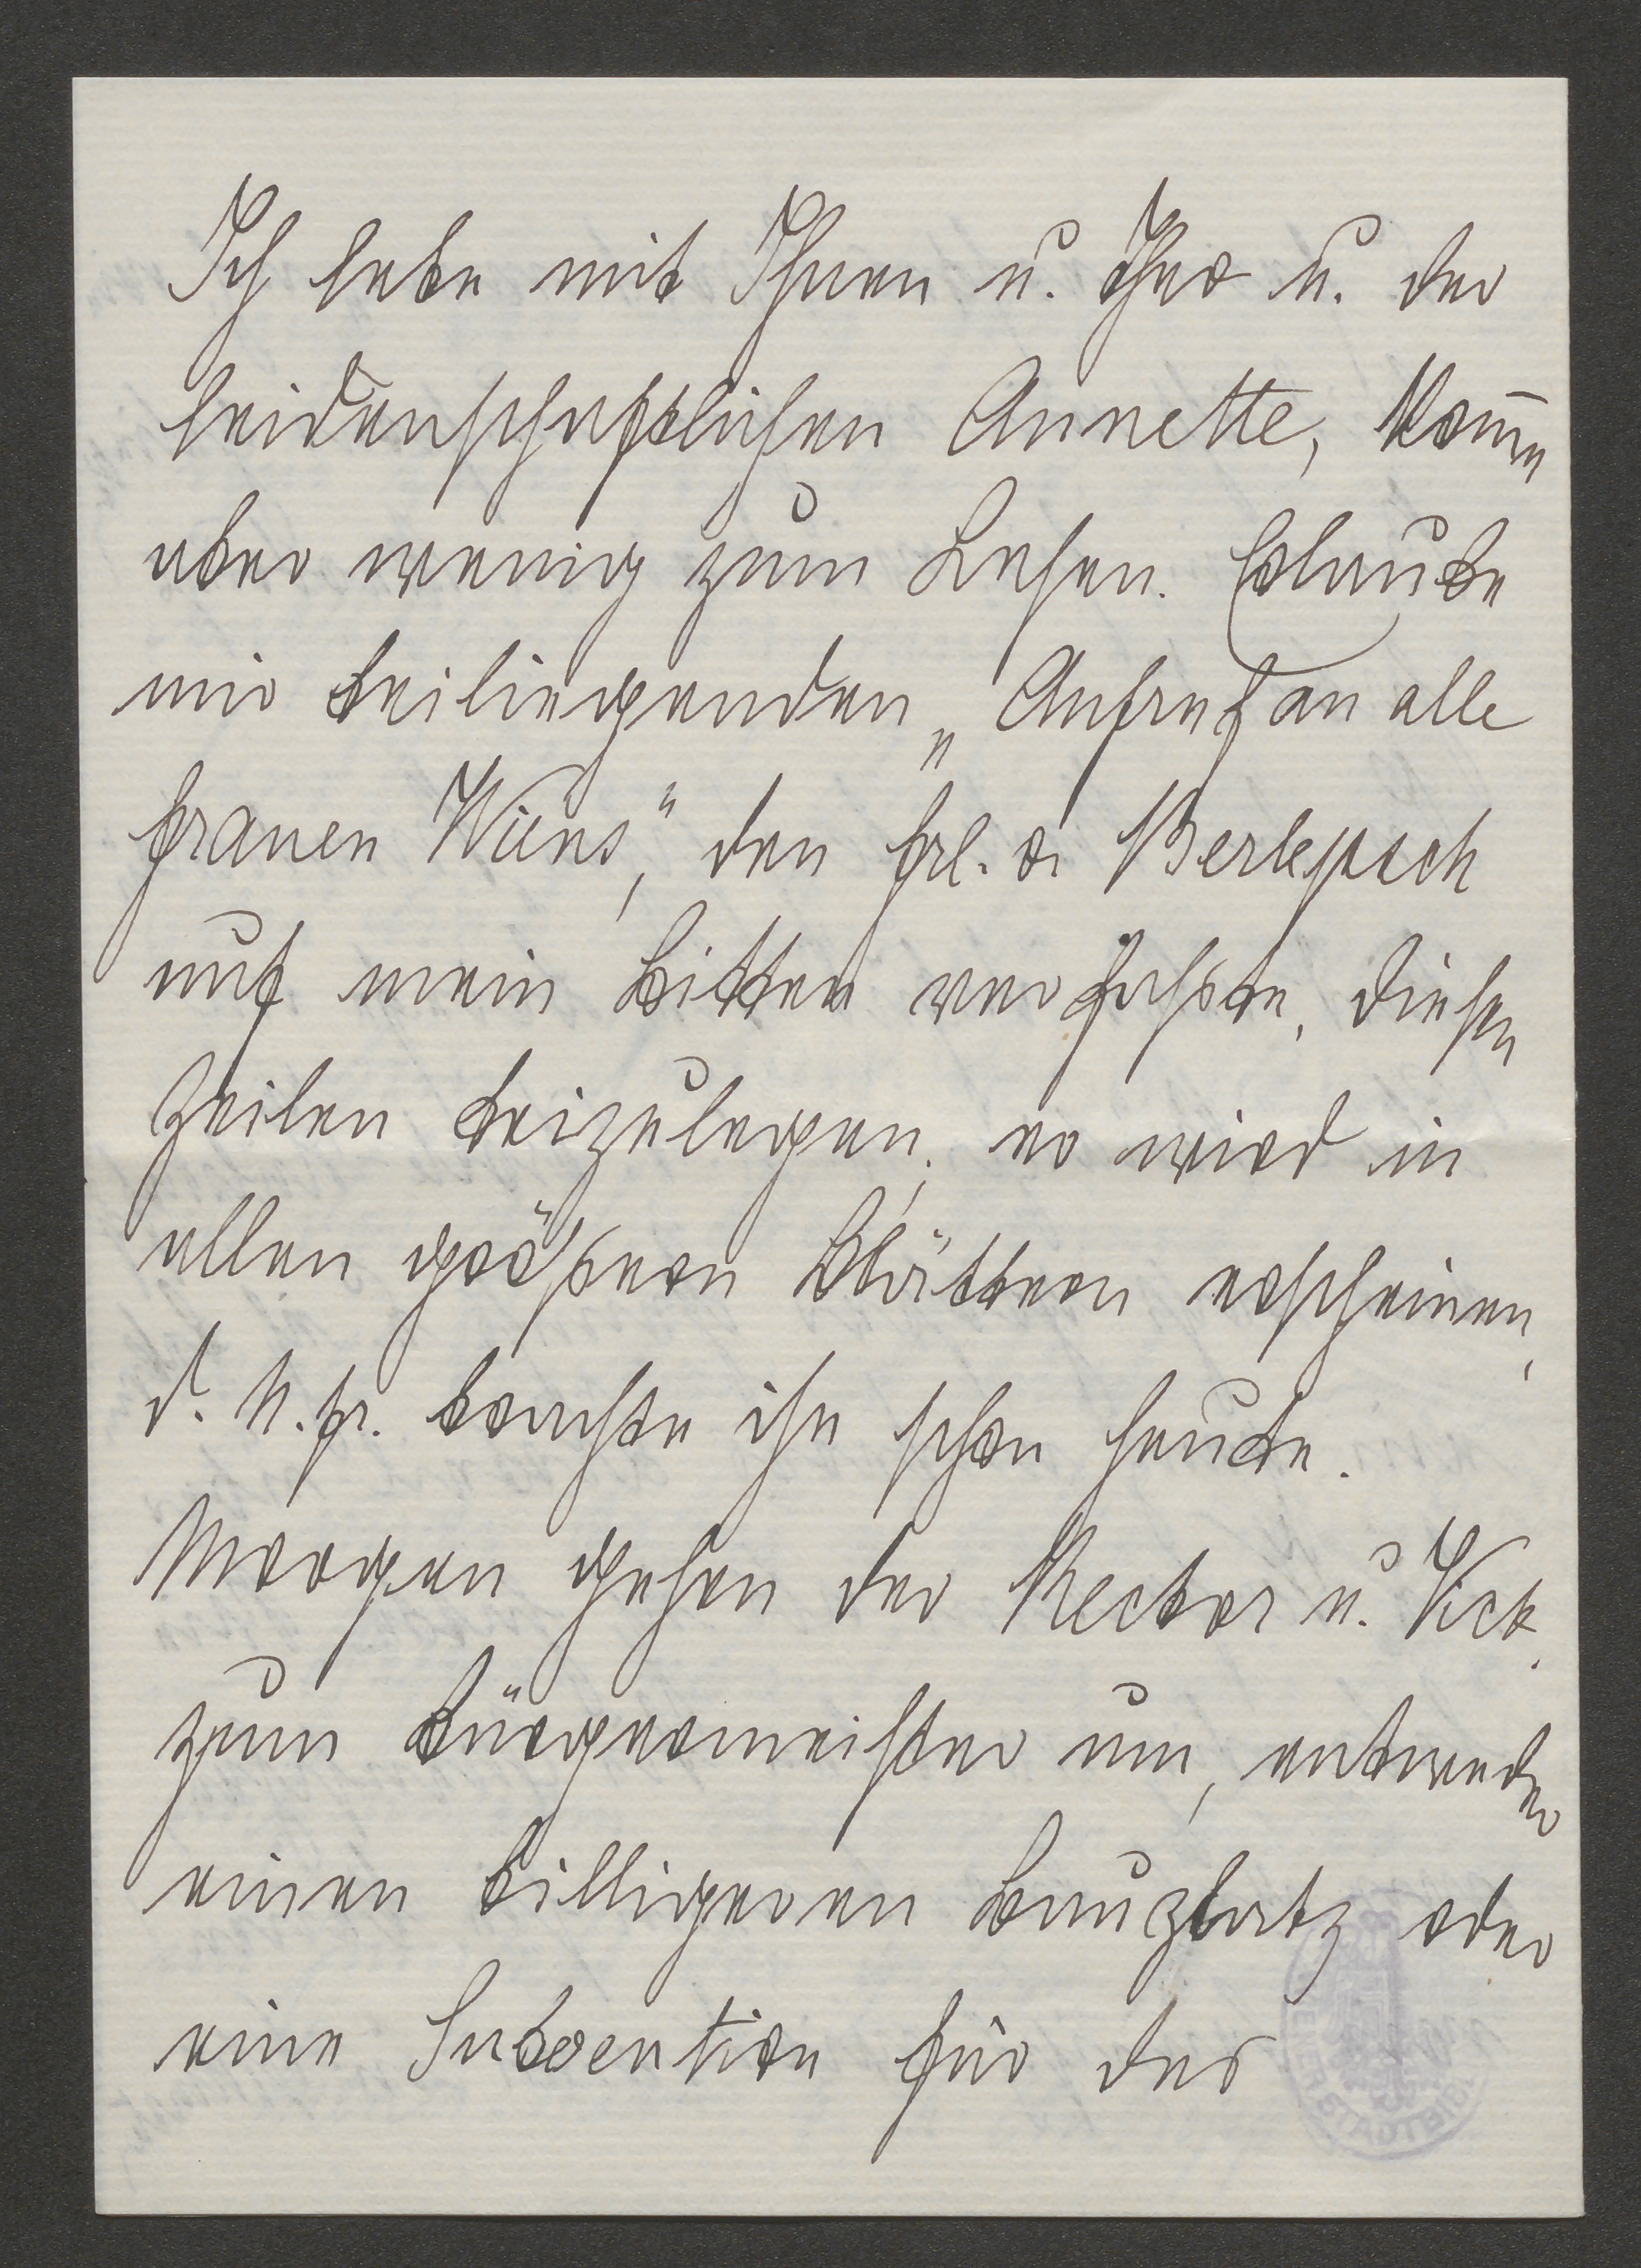 Ich lebe mit Ihnen u. Ihr u. der
leidenschaftlichen Annette, kom̄e
aber wenig zum Lesen. Erlaube
mir beiliegenden „Aufruf an alle
Frauen Wiens“, den Frl. v. Berlepsch
auf mein Bitten verfaßte, diesen
Zeilen beizulegen, er wird in
allen größern Blättern erscheinen,
d. N. Fr. brachte ihn schon heute.
Morgen gehen der Rector u. Vict.
zum Bürgermeister um, entweder
einen billigeren Bauplatz oder
eine Subvention für das
STADTBIBL